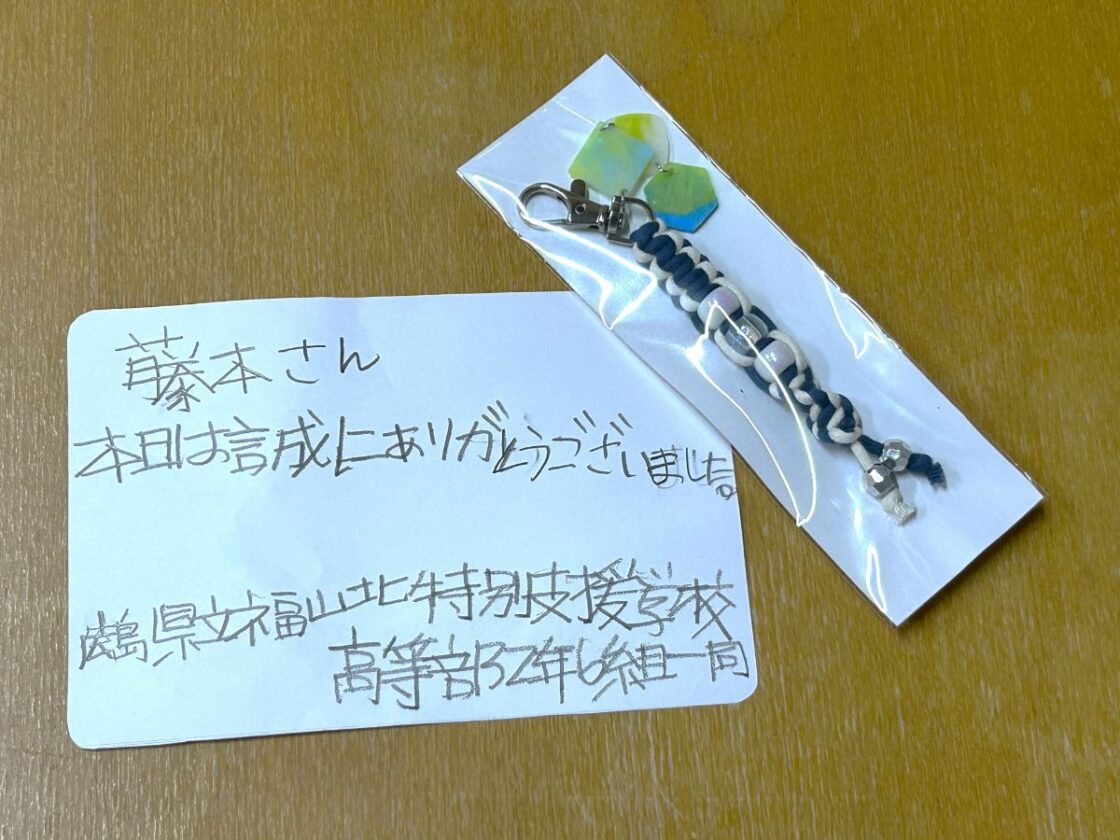 藤本さん
本日は誠にありがとうございました。
広島県立福山北特別支援学校
高等部2年6組一同